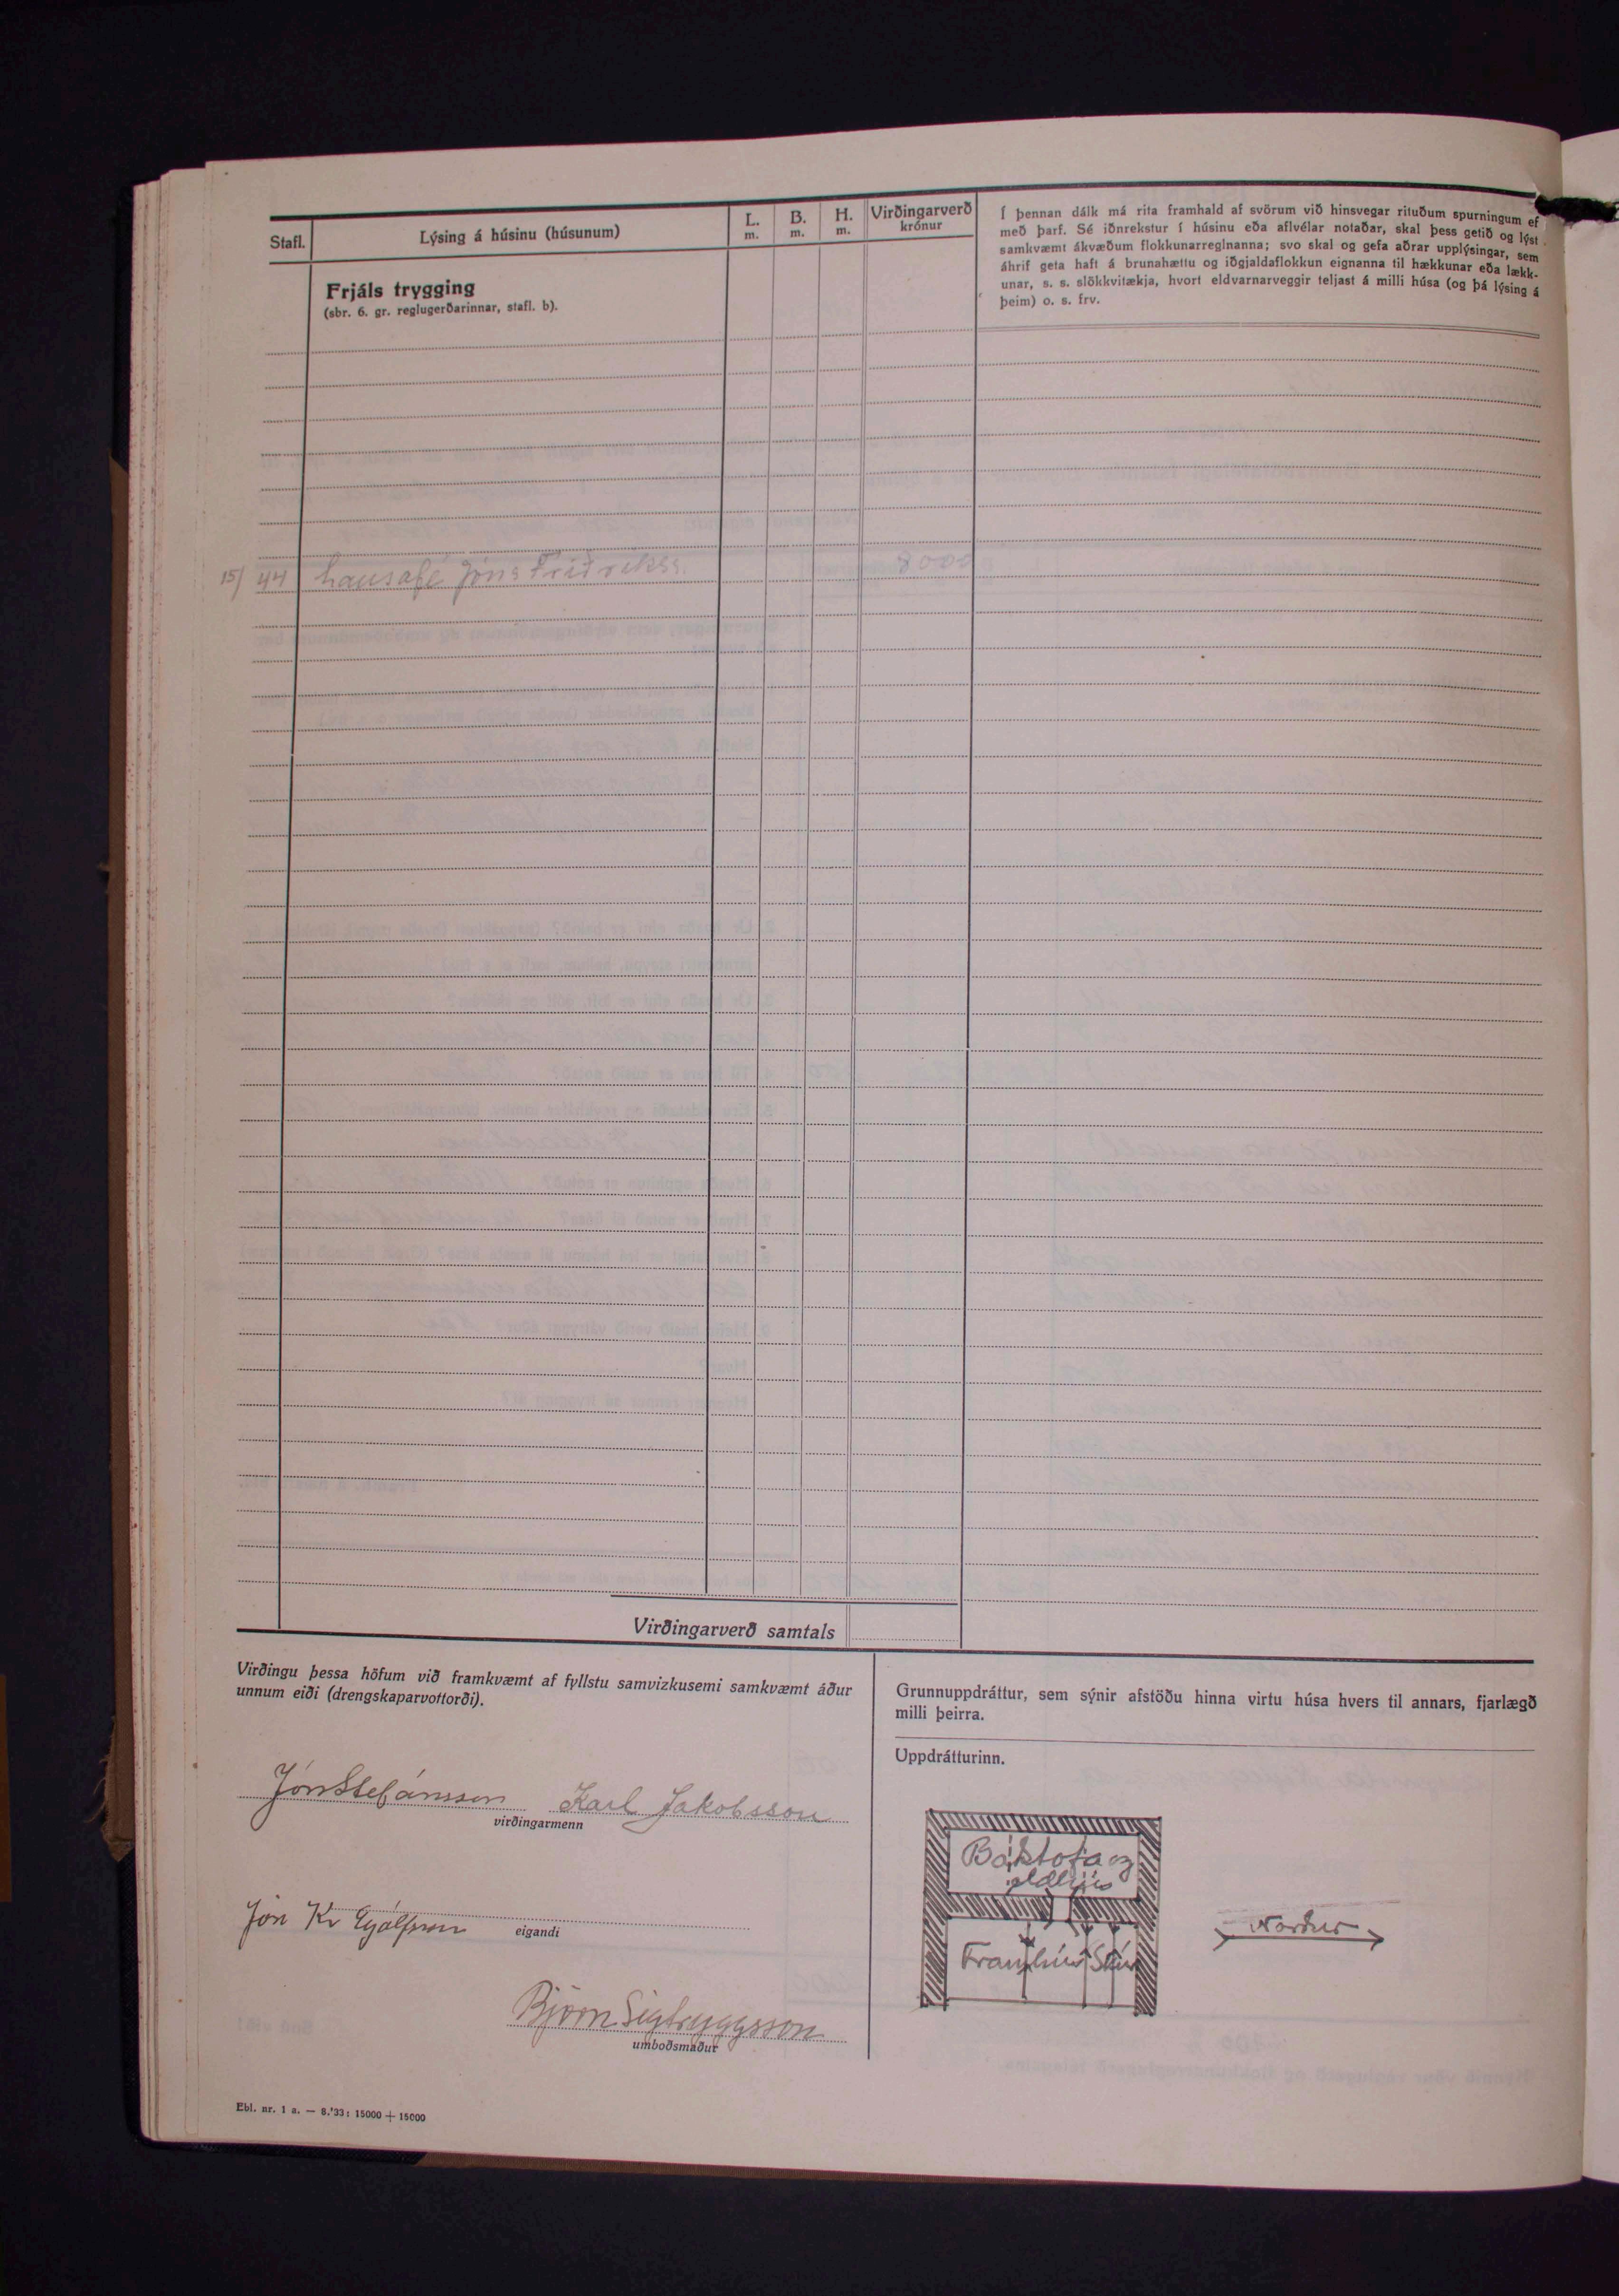 Stafl.
Lýsing á húsinu (húsunum)
L.
m.
B.
m.
H.
m.
Virðingarverð
krónur
Í þennan dálk má rita framhald af svörum við hinsvegar rituðum spurningum ef
með þarf. Sé iðnrekstur í húsinu eða aflvélar notaðar, skal þess getið og lýst
samkvæmt ákvæðum flokkunarreglnanna; svo skal og gefa aðrar upplýsingar, sem
áhrif geta haft á brunahættu og iðgjaldaflokkun eignanna til hækkunar eða lækk-
unar, s. s. slökkvitækja, hvort eldvarnarveggir teljast á milli húsa (og þá lýsing á
þeim) o. s. frv.
Frjáls trygging
(sbr. 6. gr. reglugerðarinnar, stafl. b).
15/ 44 Lausafé Jóns Friðrikss. 8000
Virðingarverð samtals
Virðingu þessa höfum við framkvæmt af fyllstu samvizkusemi samkvæmt áður
unnum eiði (drengskaparvottorði).
Jón Stefánsson Karl Jakobsson
virðingarmenn
Jón Kr
eigandi
Björn Sigtryggsson
umboðsmaður
Grunnuppdráttur, sem sýnir afstöðu hinna virtu húsa hvers til annars, fjarlægð
milli þeirra.
Uppdrátturinn.
Baðstofa og
eldhús
Framhús
Norður
Ebl. nr. 1 a. — 8.'33: 15000 + 15000